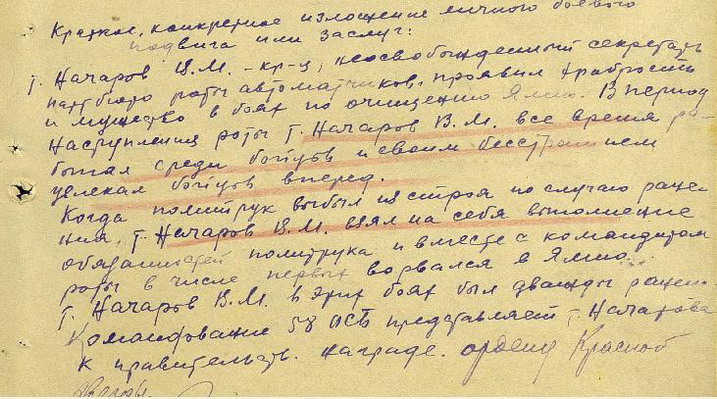 Краткое, конкретное изложение личного боевого
подвига или заслуг:
т. Начаров В.М. - кр-ц, неосвобожденный секретарь
партбюро роты автоматчиков, проявил храбрость
и мужество в боях по очищению Ямно. В период
наступления роты т. Начаров В.М. все время ра-
ботал среди бойцов и своим бесстрашием
увлекал бойцов вперед.
Когда политрук выбыл из строя по случаю ране-
ния, т. Начаров В.М. взял на себя выполнение
обязанностей политрука и вместе с командиром
роты в числе первых ворвался в Ямно.
Т. Начаров В.М. в этих боях был дважды ранен.
Командование 58 ОСБ представляет т. Начарова
к правительств. награде. орденом Красной
звезды.